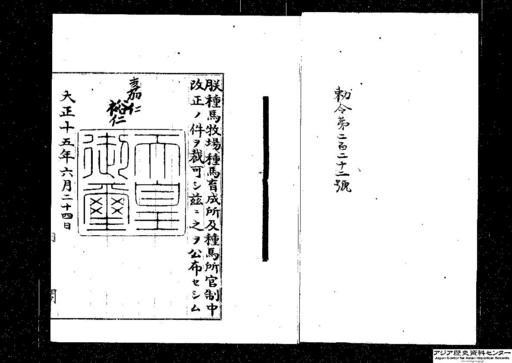 勅令第二百二十二號
朕種馬牧場種馬育成所及種馬所官制中
改正ノ件ヲ裁可シ茲ニ之ヲ公布セシム
嘉仁
裕仁
天皇
御璽
大正十五年六月二十四日
アジア歴史資料センター
Japan Center for Asian Historical Records